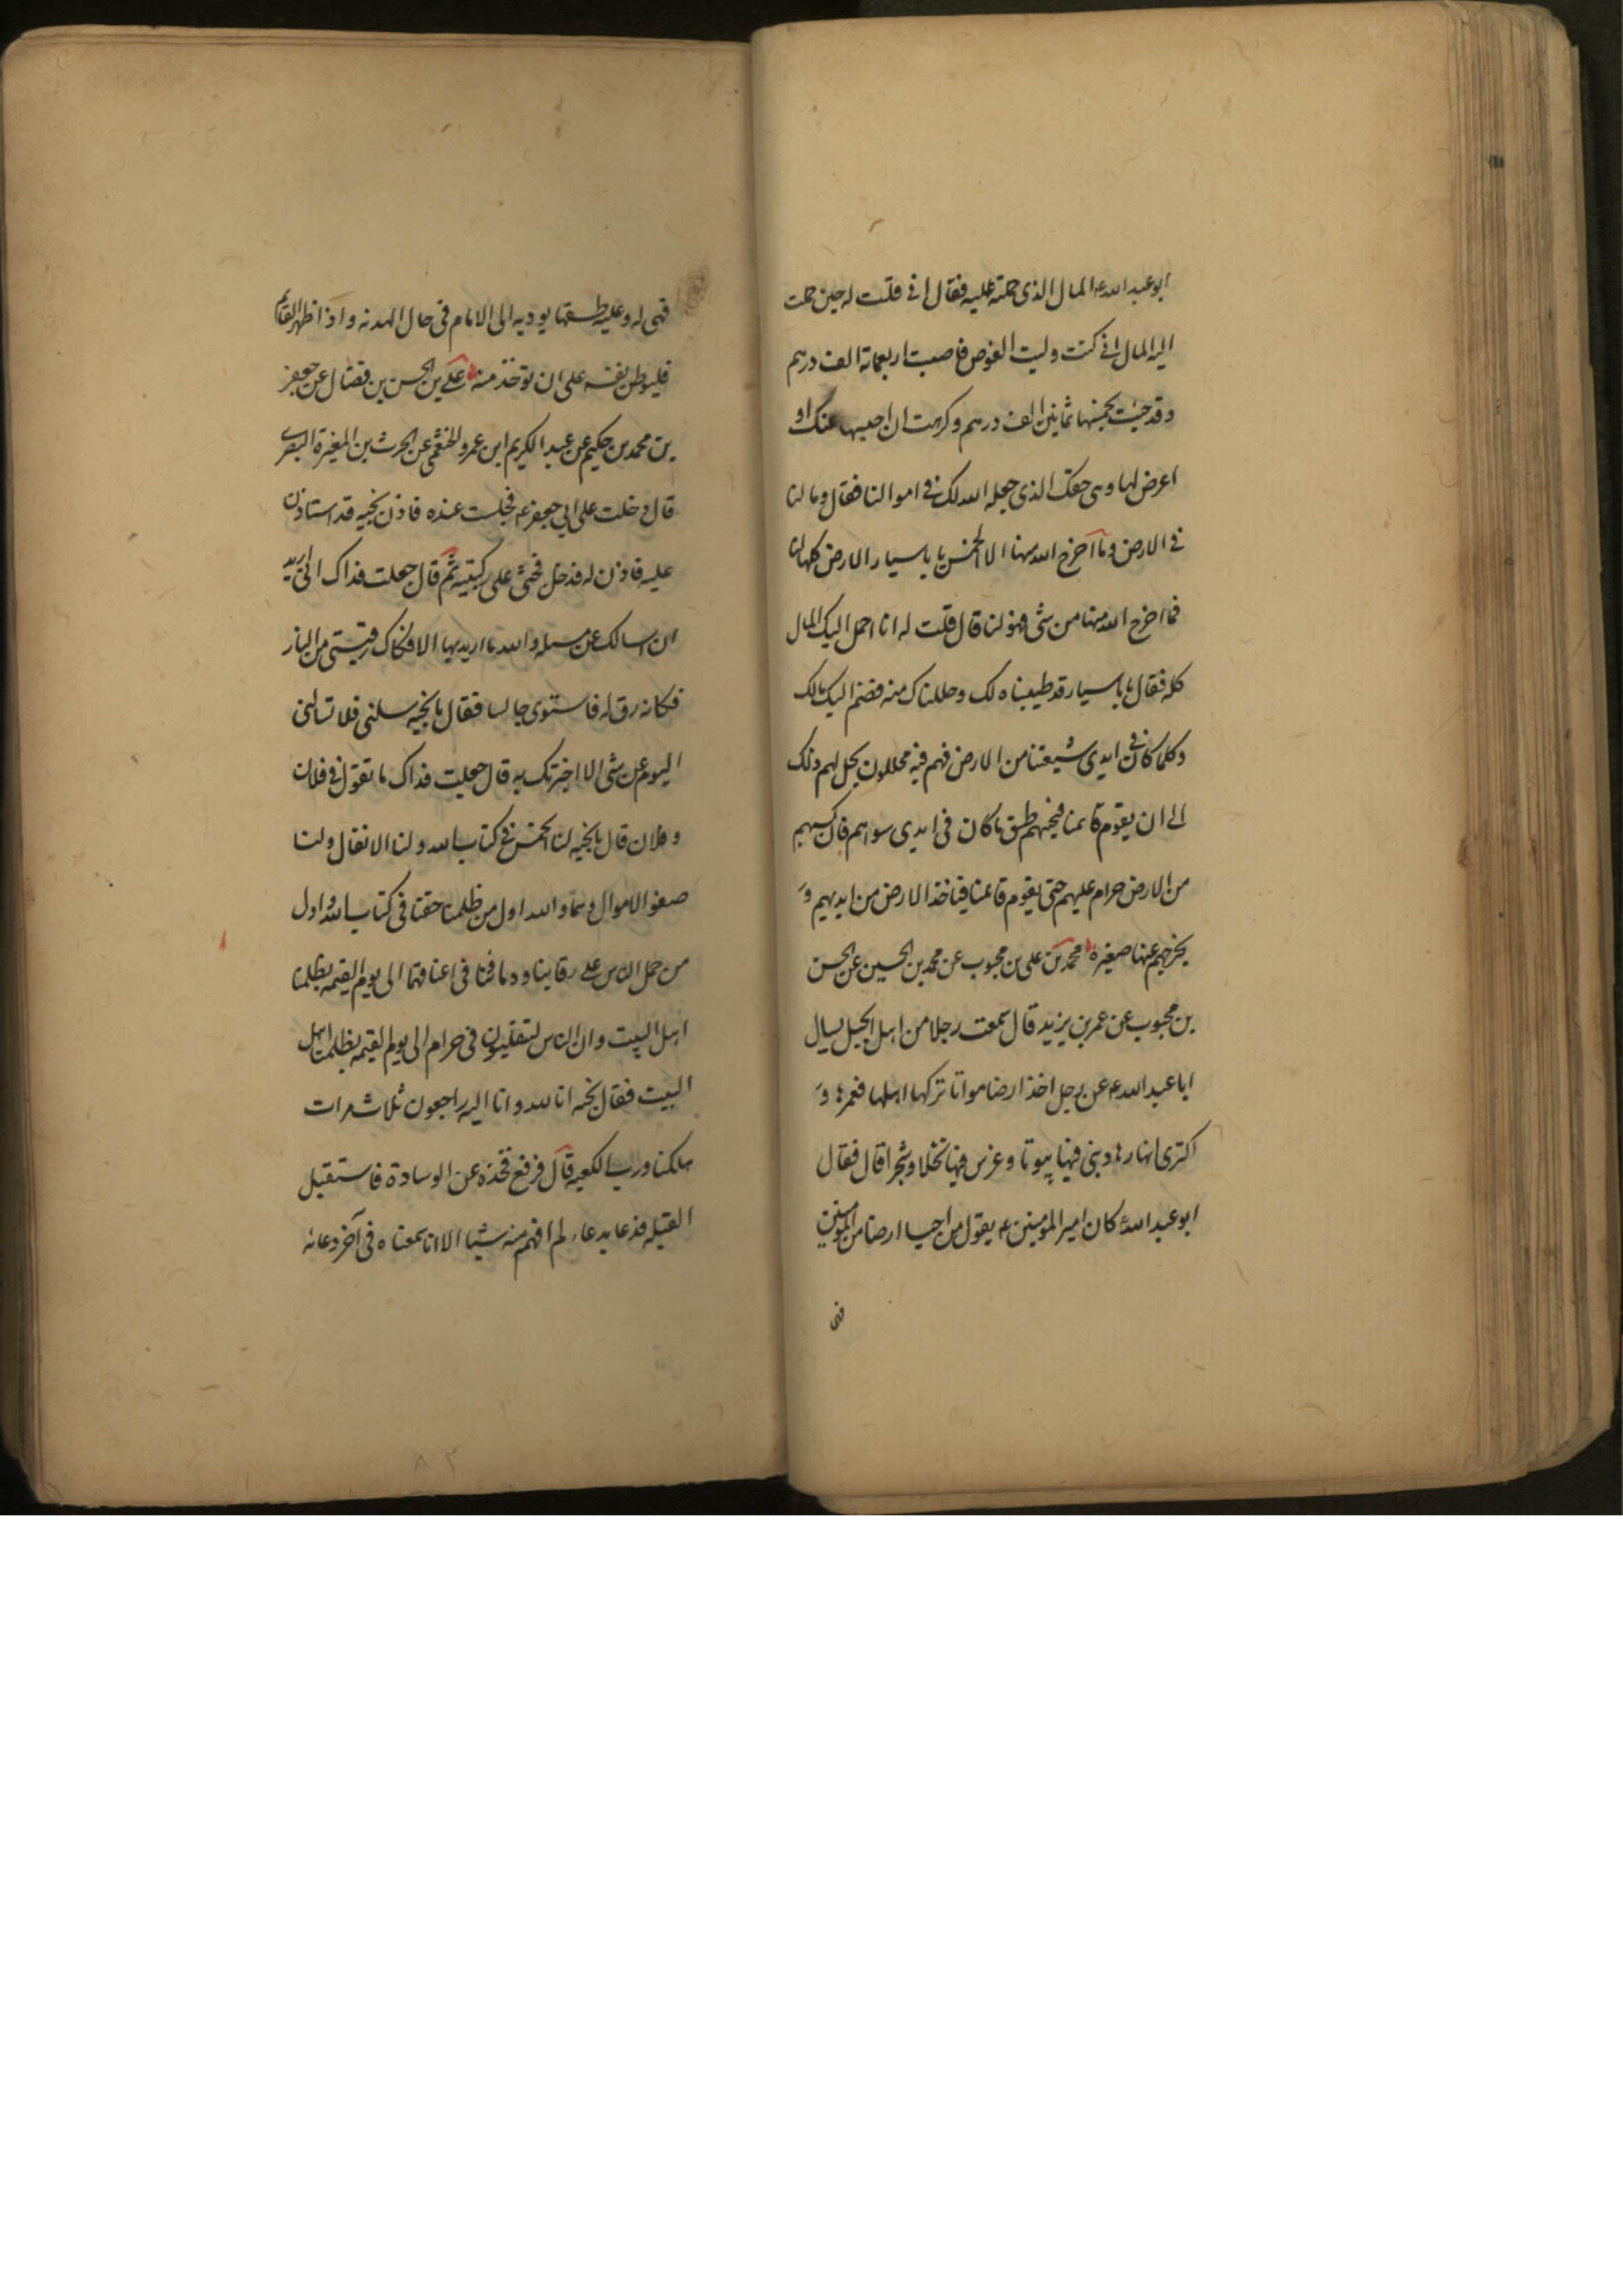 ابو عبد الله ع المال الذي حملته عليه فقال اني قلت له حين حملت
اليه المال اني كنت وليت الغوص فاصبت اربعمائة الف درهم
و قد جئت بخمسها ثمانين الف درهم و كرهت ان احبسها عنك او
اعرض لها و هي حقك الذي جعله الله لك في اموالنا فقال و ما لنا
في الارض و ما اخرج الله منها الا الخمس يا با سيار الارض كلها لنا
فما اخرج الله منها من شي فهو لنا قال قلت له انا احمل اليك المال
كله فقال يا با سيار قد طيبناه لك و حللناك منه فضم اليك مالك
و كلما كان في ايدي شيعتنا من الارض فهم فيه محللون يحل لهم ذلك
الى ان يقوم قائمنا فيجبهم طسق ما كان في ايدي سواهم فان كسبهم
من الارض حرام عليهم حتى يقوم قائمنا فياخذ الارض من ايديهم و
يخرجهم عنها صغيرة محمد بن علي بن محبوب عن محمد بن الحسين عن الحسن
بن محبوب عن عمر بن يزيد قال سمعت رجلا من اهل الجبل يسال
ابا عبد الله ع عن رجل اخذ ارضا مواتا تركها اهلها فعمرها و
اكرى انهارها و بنى فيها بيوتا و غرس فيها نخلا و شجرا قال فقال
ابو عبد الله ع كان امير المؤمنين ع يقول من احيا ارضا من المؤمنين
فهي
فهي له و عليه طسقها يوديه الى الامام في حال الهدنه و اذا ظهر القائم
فليوطن نفسه على ان توخذ منه علي بن الحسن بن فضال عن جعفر
بن محمد بن حكيم عن عبد الكريم ابن عمرو الخثعمي عن الحرث بن المغيرة النصري
قال دخلت على ابي جعفر ع فجلست عنده فاذن نجيه قد استاذن
عليه فاذن له فدخل فجثى على ركبتيه ثم قال جعلت فداك اني اريد
ان اسالك عن مسله و الله ما اريد بها الا فكاك رقبتي من النار
فكانه رق له فاستوى جالسا فقال يا نجيه سلني فلا تسالني
اليوم عن شي الا اخبرتك به قال جعلت فداك ما تقول في فلان
و فلان قال يا نجيه لنا الخمس في كتاب الله و لنا الانفال و لنا
صفو الاموال و هما و الله اول من ظلمنا حقنا في كتاب الله و اول
من حمل الناس على رقابنا و دماؤنا في اعناقهما الى يوم القيمه بظلمنا
اهل البيت و ان الناس لتقلبون في حرام الى يوم القيمه بظلمنا اهل
البيت فقال نجيه انا لله و انا اليه راجعون ثلاث مرات
هلكنا و رب الكعبه قال فرفع فخذه عن الوسادة فاستقبل
القبله فدعا بدعاء لم افهم منه شيا الا انا سمعناه في آخر دعائه
۸۲